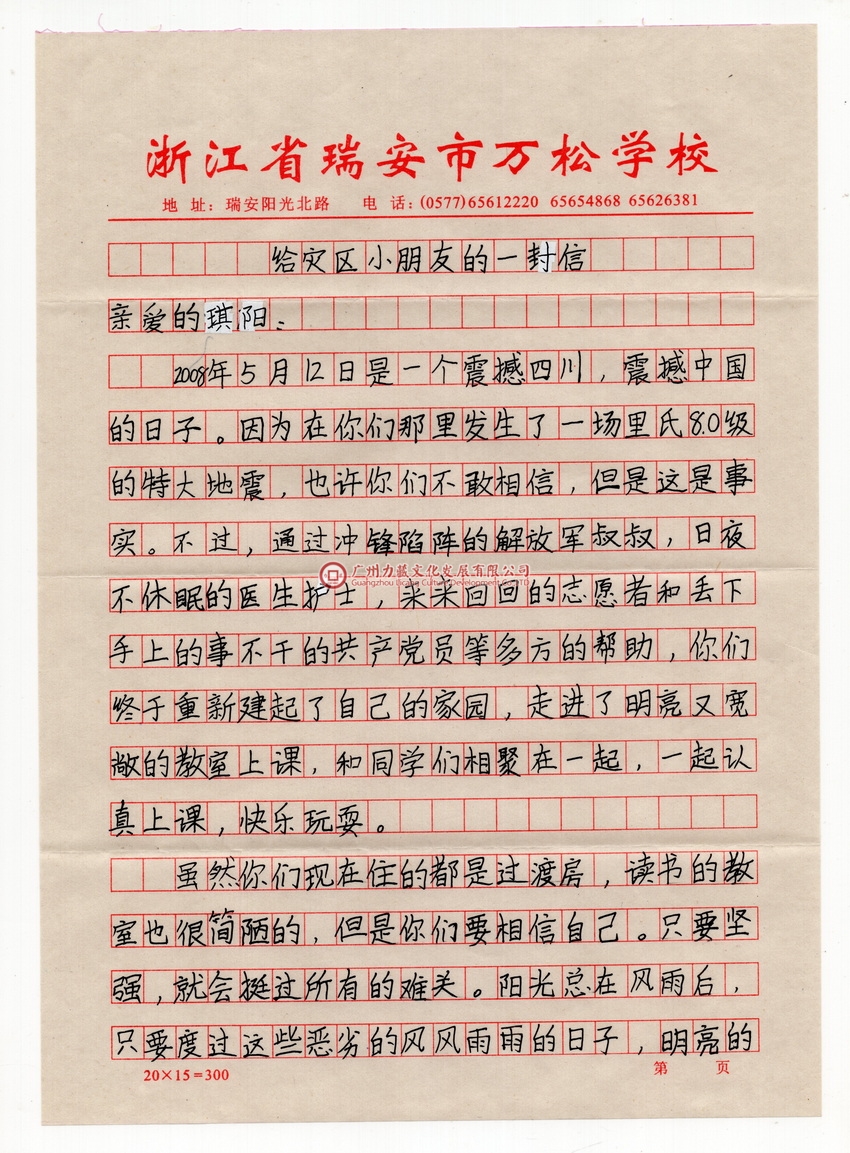 浙江省瑞安市万松学校
地 址：瑞安阳光北路 电 话：(0577)65612220 65654868 65626381
给灾区小朋友的一封信
亲爱的琪阳：
2008年5月12日是一个震撼四川，震撼中国
的日子。因为在你们那里发生了一场里氏8.0级
的特大地震，也许你们不敢相信，但是这是事
实。不过，通过冲锋陷阵的解放军叔叔，日夜
广州力藝文化发展有限公司
Guangzhou Liceng Culture Development Co.,LTD
不休眠的医生护士，来来回回的志愿者和丢下
手上的事不干的共产党员等多方的帮助，你们
终于重新建起了自己的家园，走进了明亮又宽
敞的教室上课，和同学们相聚在一起，一起认
真上课，快乐玩耍。
虽然你们现在住的都是过渡房，读书的教
室也很简陋的，但是你们要相信自己。只要坚
强，就会挺过所有的难关。阳光总在风雨后，
只要度过这些恶劣的风风雨雨的日子，明亮的
20×15=300 第 页